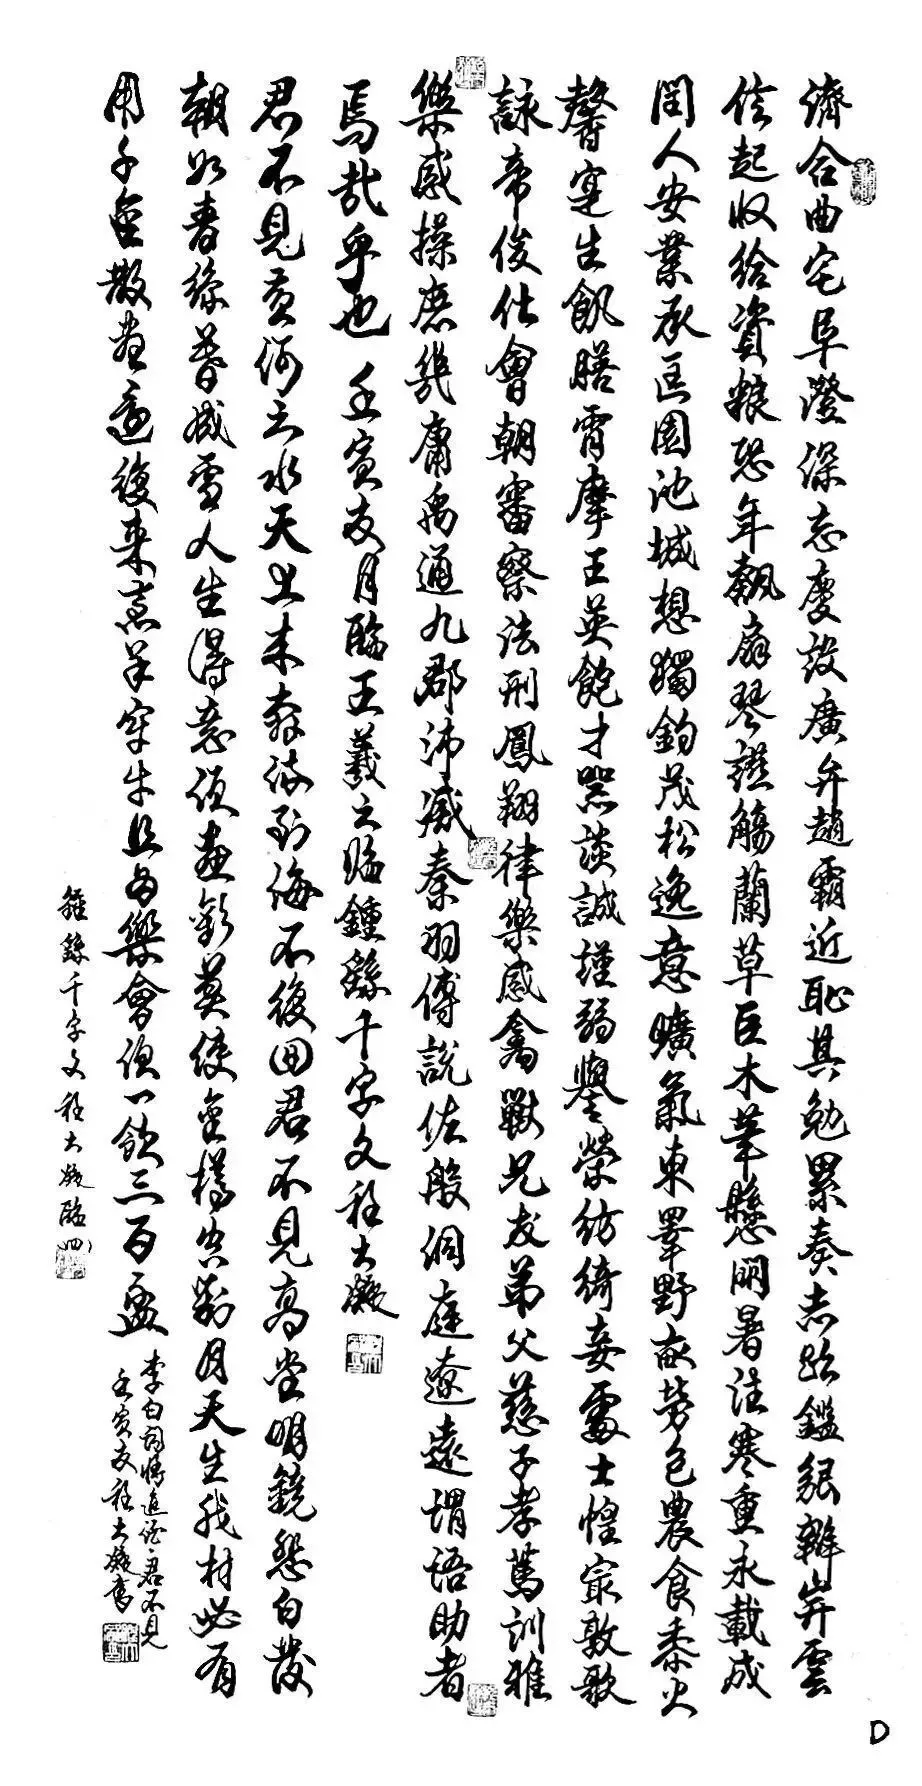 濟合曲宅阜澄深忘慶設廣弁趙霸近恥其勉累奏志路鑑貌辨弁雲
信起收給資粮恐年飄扇琴讌觴蘭草巨木莘懸朗暑往寒重永載成
閏人安業承匡園池城想獨鈞茂松逸意曠氣東睪野畝勞色農食黍火
馨寔生飢膳霄摩王英飽才器談誠謹弱舉榮紡綺妾處士惶寂敦歌
詠帝俊仕會朝審察法刑鳳翔律樂感禽獸兄友弟父慈子孝篤訓雅
樂感操庶幾庸禹通九郡沛感秦羽傅說佐殷洞庭遼遠謂語助者
焉哉乎也 壬寅友月臨王羲之臨鍾繇千字文程大凝
君不見黃河之水天上來奔流到海不復回君不見高堂明鏡悲白發
朝如青絲暮成雪人生得意須盡歡莫使金樽空對月天生我材必有
用千金散盡還復來烹羊宰牛且為樂會須一飲三百盃
李白詞將進酒君不見
壬寅友程大凝書
鍾繇千字文程大凝臨四
D